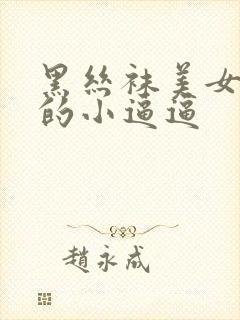 黑丝袜美女
的小逼逼
趙永成